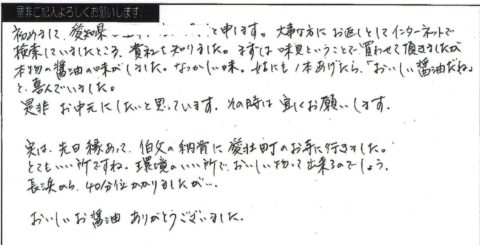 是非ご記入よろしくお願いします
初めまして、愛知県 と申します。大事な方にお返しとしてインターネットで
検索していましたところ、貴社を知りました。まずは味見ということで買わせて頂きましたが
本物の醤油の味がしました。なつかしい味。妹にも1本あげたら、「おいしい醤油だね」
と喜んでいました。
是非 お中元にしたいと思っています。その時は宜しくお願いします。
実は、先日縁あって、伯父の納骨に愛荘町のお寺に行きました。
とてもいい所ですね。環境のいい所で、おいしい物って出来るのでしょう。
長浜から、40分位かかりましたが…。
おいしいお醤油 ありがとうございました。